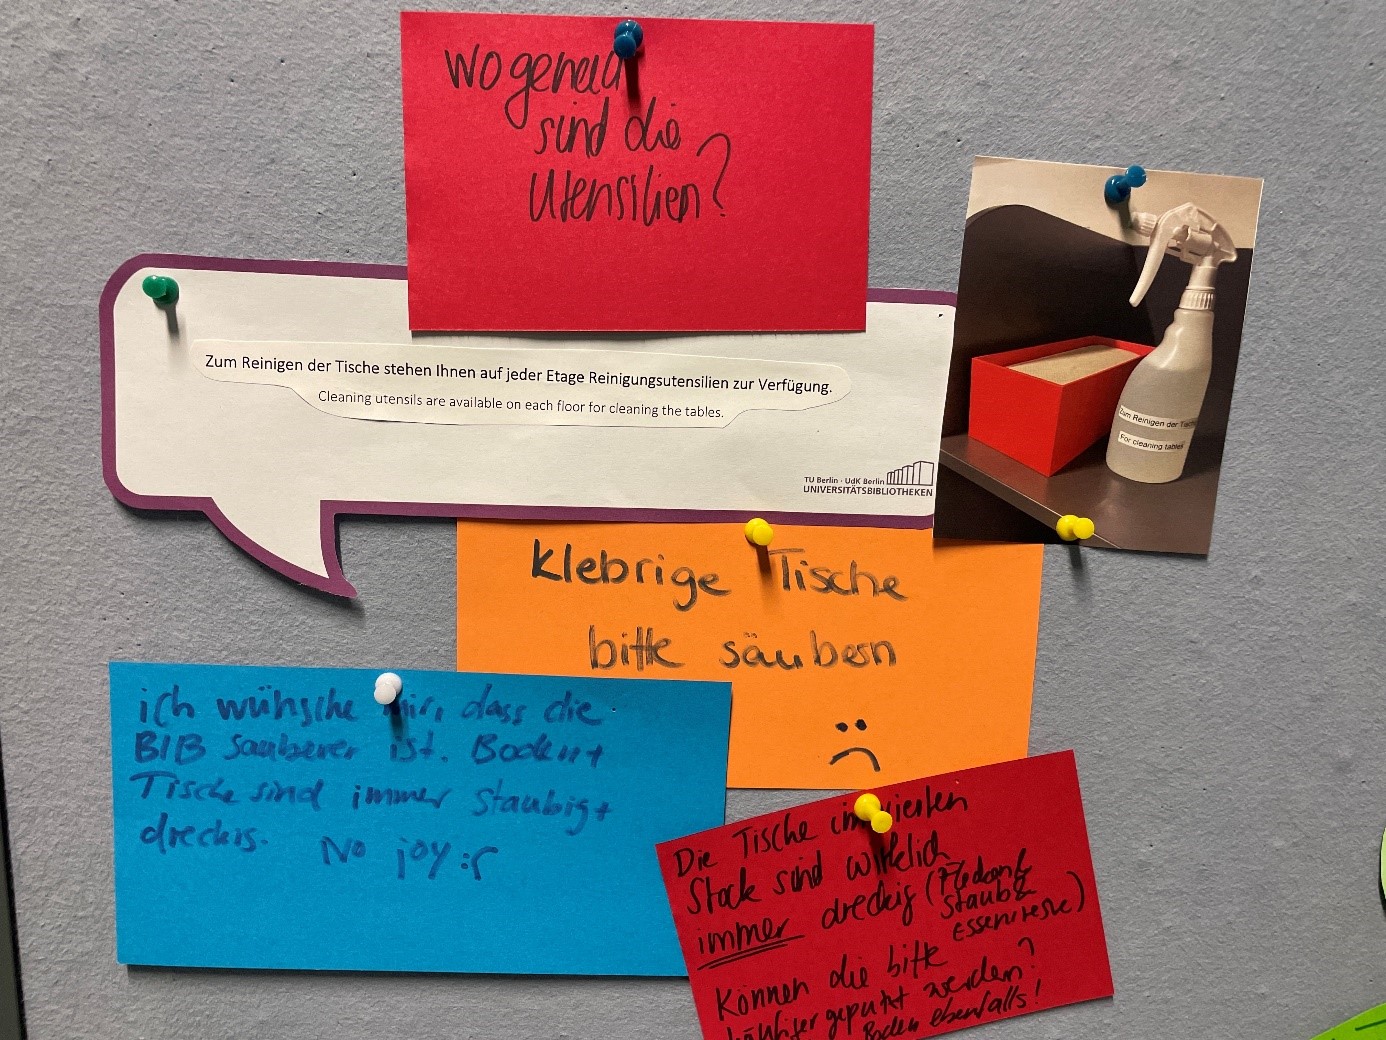 wo genau
sind die
Utensilien?
Zum Reinigen der Tische stehen Ihnen auf jeder Etage Reinigungsutensilien zur Verfügung.
Cleaning utensils are available on each floor for cleaning the tables.
TU Berlin · UdK Berlin
UNIVERSITÄTSBIBLIOTHEKEN
Zum Reinigen der Tische
For cleaning tables
Klebrige Tische
bitte säubern
ich wünsche mir, dass die
BIB sauberer ist. Boden +
Tische sind immer staubig +
dreckig. No joy :(
Die Tische im vierten
Stock sind wirklich
immer dreckig (Flecken &
Staub &
Essensreste)
Können die bitte
häufiger geputzt werden?
Boden ebenfalls!